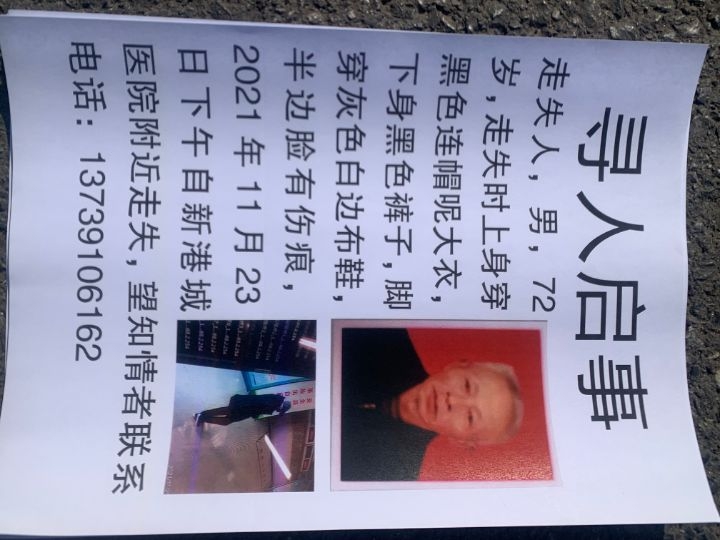 寻人启事
走失人，男，72
岁，走失时上身穿
黑色连帽呢大衣，
下身黑色裤子，脚
穿灰色白边布鞋，
半边脸有伤痕，
2021 年 11 月 23
日下午自新港城
医院附近走失，望知情者联系
电话：13739106162